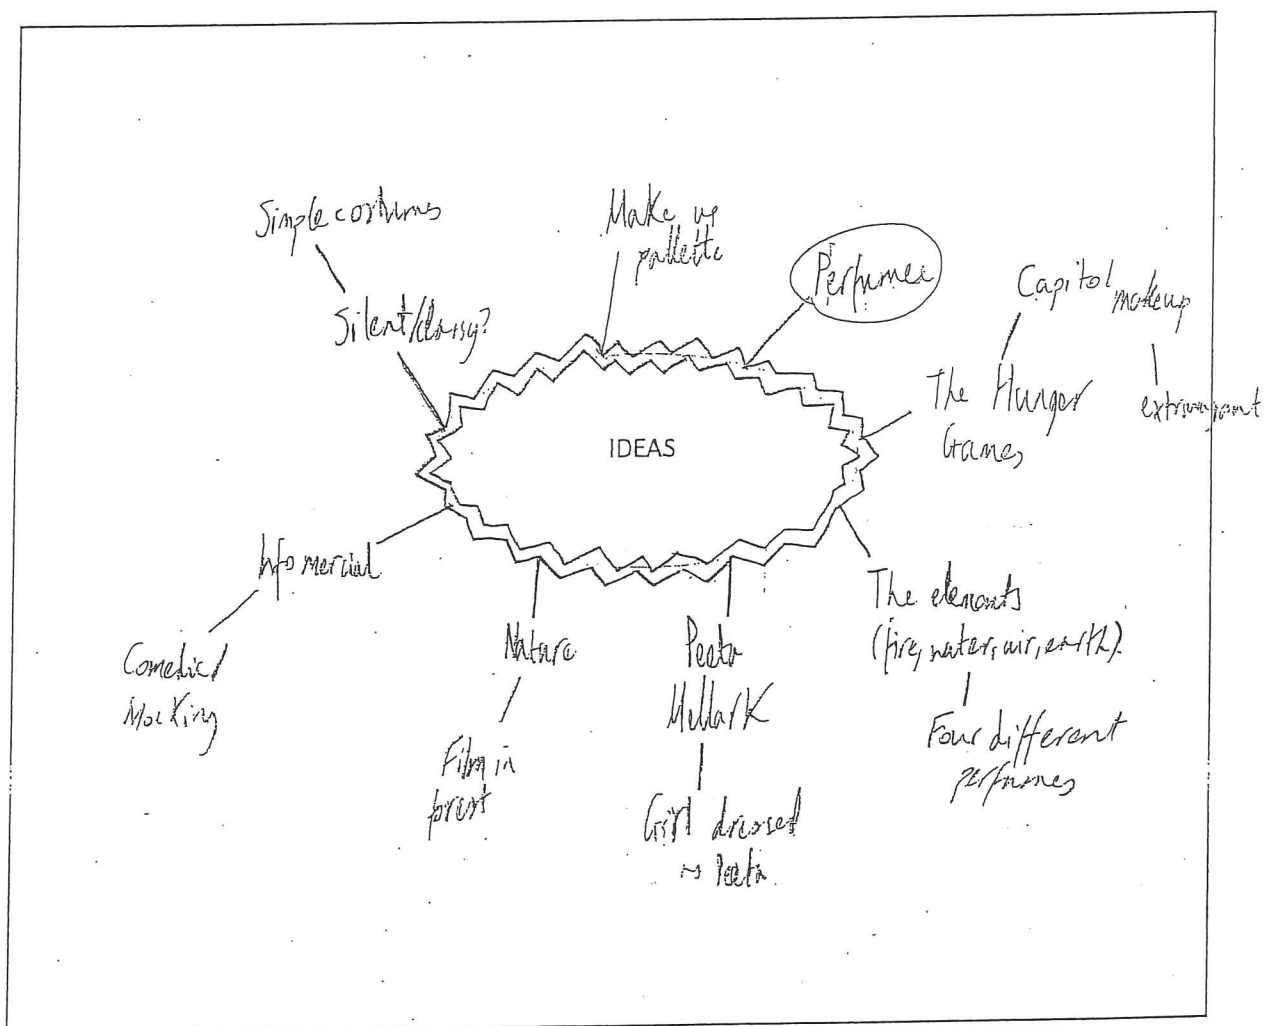 Simple costumes
Silent/classy?
Make up
pallette
Perfumes
Capitol makeup
extravagant
The Hunger
Games
IDEAS
The elements
(fire, water, air, earth).
Four different
perfumes
Peeta
Mellark
Girl dressed
as Peeta
Nature
Film in
forest
Infomercial
Comedic/
Mocking